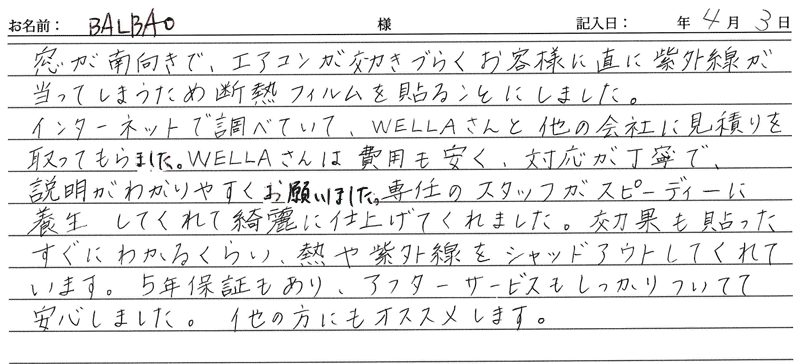 お名前： BALBAO 様 記入日： 年 4 月 3 日
窓が南向きで、エアコンが効きづらくお客様に直に紫外線が
当ってしまうため断熱フィルムを貼ることにしました。
インターネットで調べていて、WELLAさんと他の会社に見積りを
取ってもらました。WELLAさんは費用も安く、対応が丁寧で、
説明がわかりやすくお願いしました。専任のスタッフがスピーディーに
養生 してくれて綺麗に仕上げてくれました。効果も貼った
すぐにわかるくらい、熱や紫外線をシャッドアウトしてくれて
います。5年保証もあり、アフターサービスもしっかりついてて
安心しました。他の方にもオススメします。